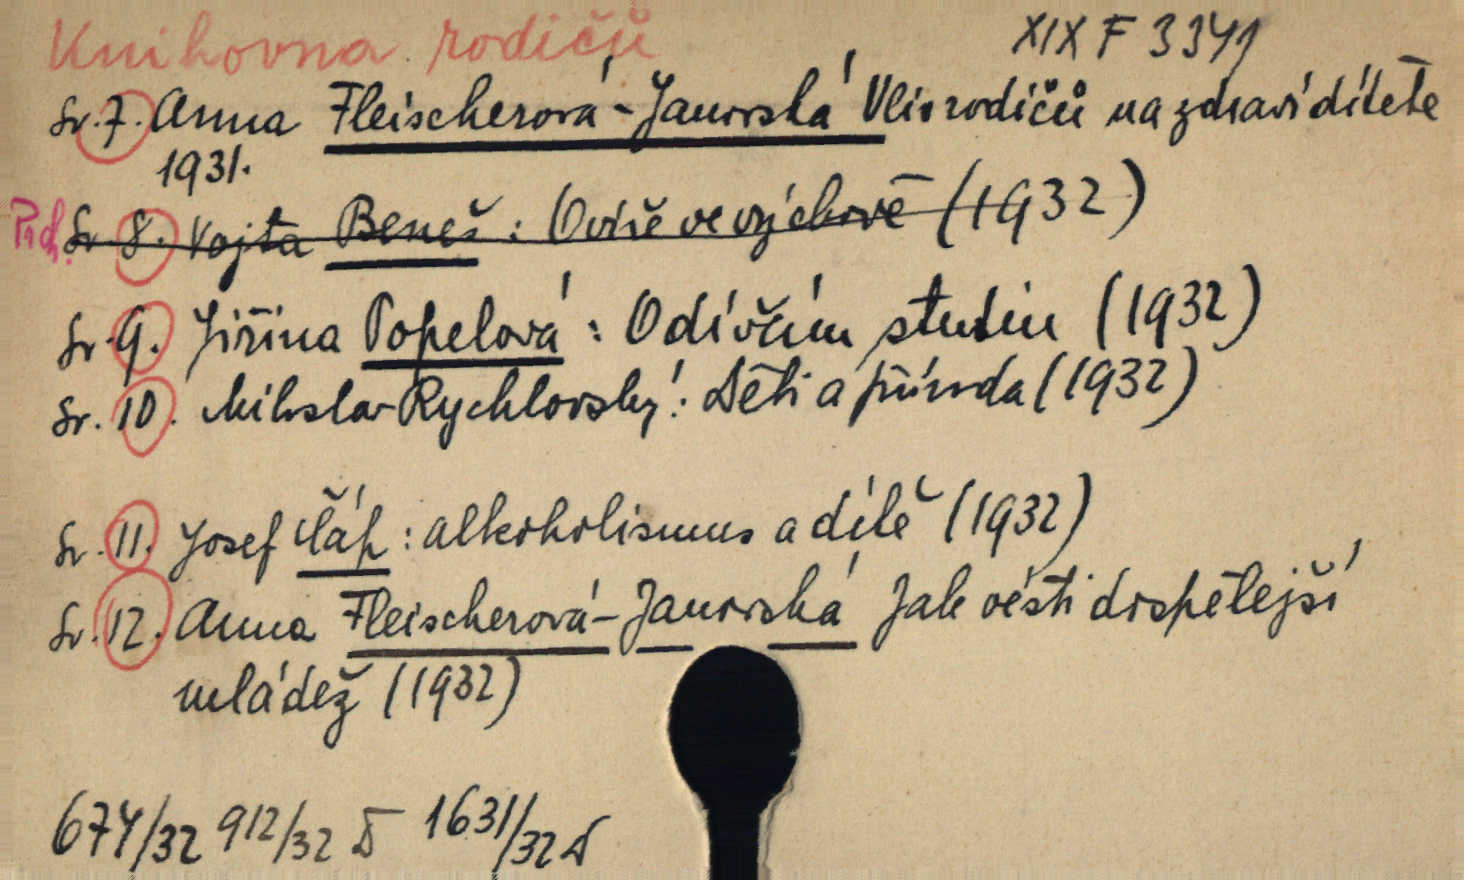 Knihovna rodičů XIX F 3341
Sv. 7. Anna Fleischerová-Janovská Vliv rodičů na zdraví dítěte
1931.
Sv. 8. Vojta Beneš: O víře ve výchově (1932)
Sv. 9. Jiřina Popelová: O dívčím studiu (1932)
Sv. 10. Miloslav Rychlovský: Děti a příroda (1932)
Sv. 11. Josef Čáp: alkoholismus a dítě (1932)
Sv. 12. Anna Fleischerová-Janovská Jak vésti dospělejší
mládež (1932)
674/32 912/32 D 1631/32 D